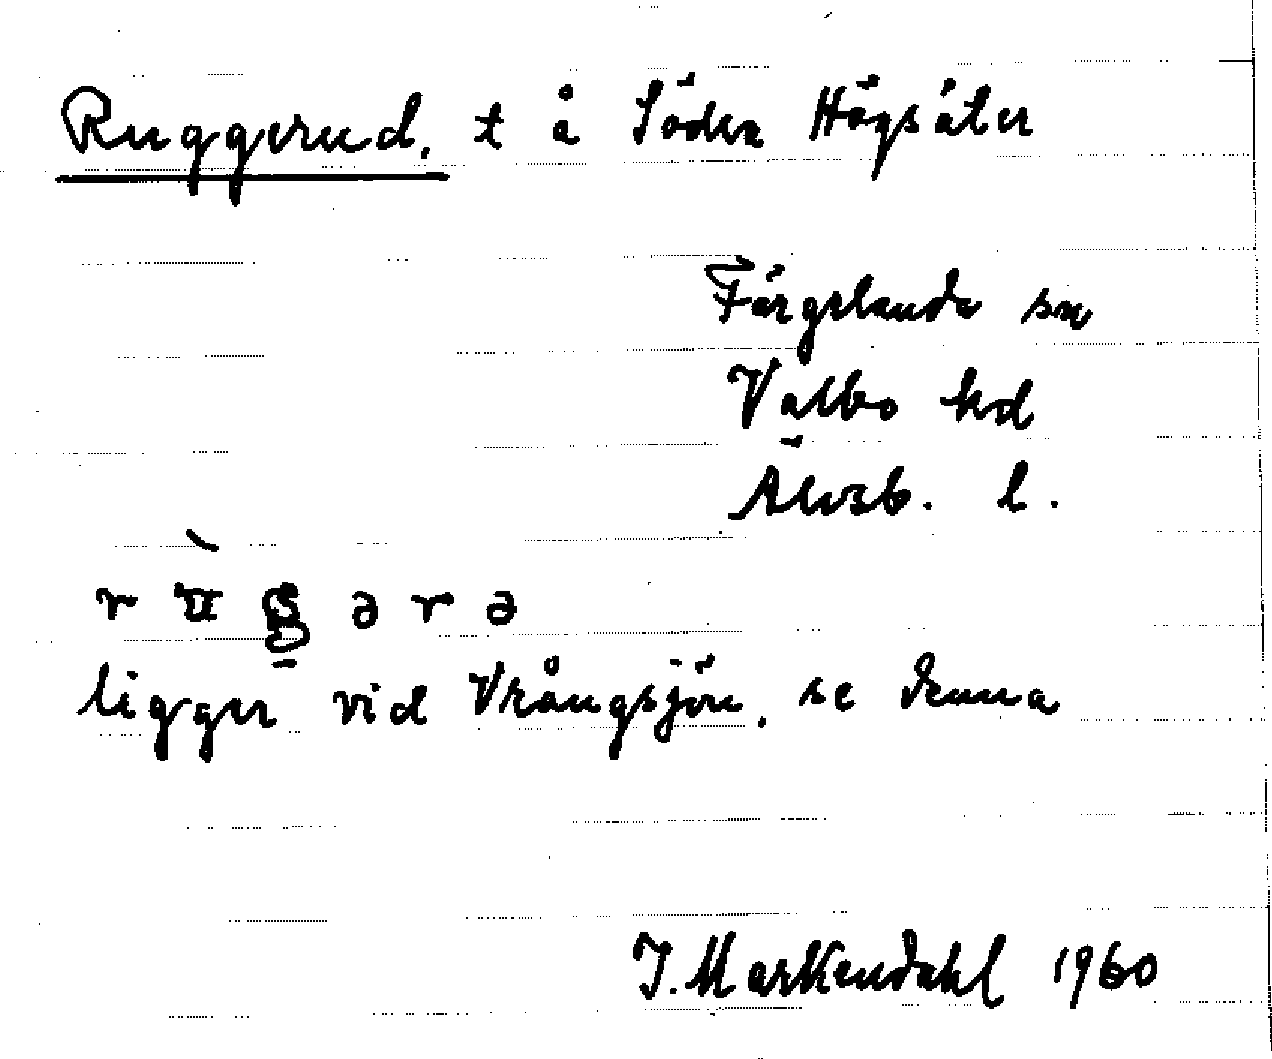 Ruggerud, t å Söder Högsäter
Färgelanda sn
Valbo hd
Älvsb. l.
ligger vid Vrångsjön, se denna
J. Markendahl 1960